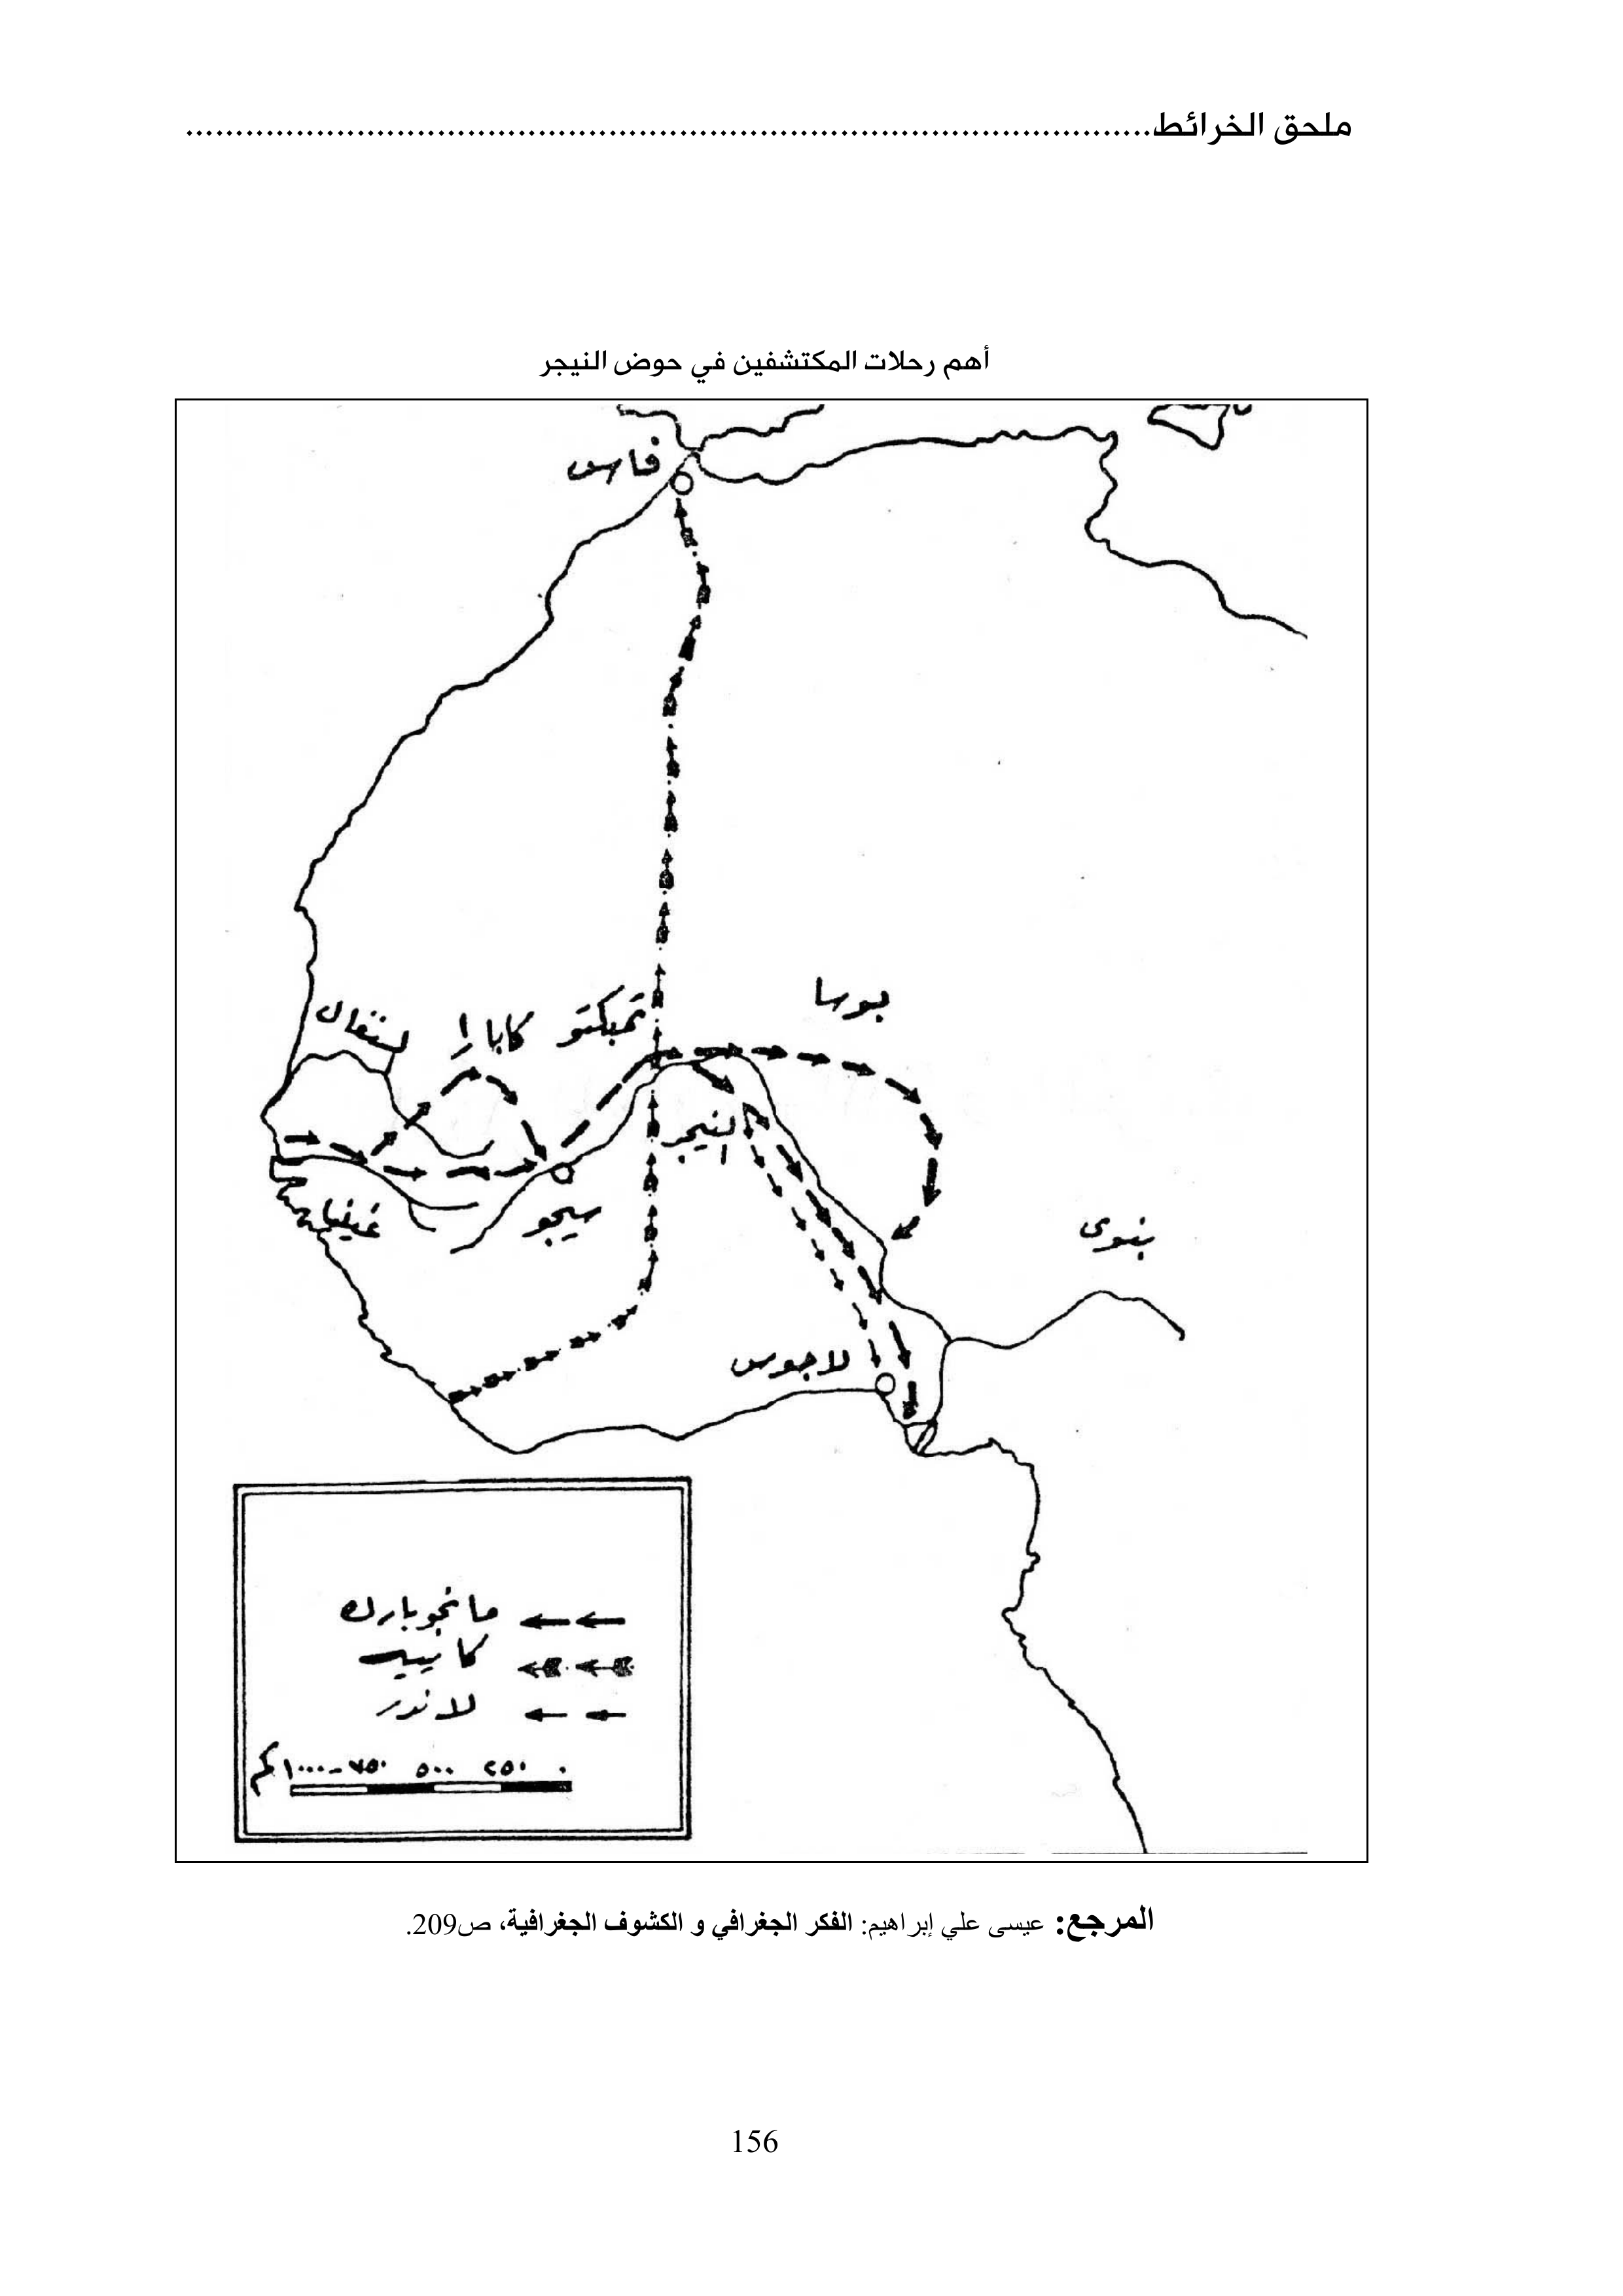 ملحق الخرائط................................................................................................
أهم رحلات المكتشفين في حوض النيجر
فاس
بوسا
تمبكتو
كابارا
السنغال
النيجر
سيجو
غينيا
بنوى
لاجوس
مانجوبارك
كاييه
لاندر
٠ ٢٥٠ ٥٠٠ ٧٥٠ ١٠٠٠ كم
المرجع: عيسى علي إبراهيم: الفكر الجغرافي و الكشوف الجغرافية، ص209.
156